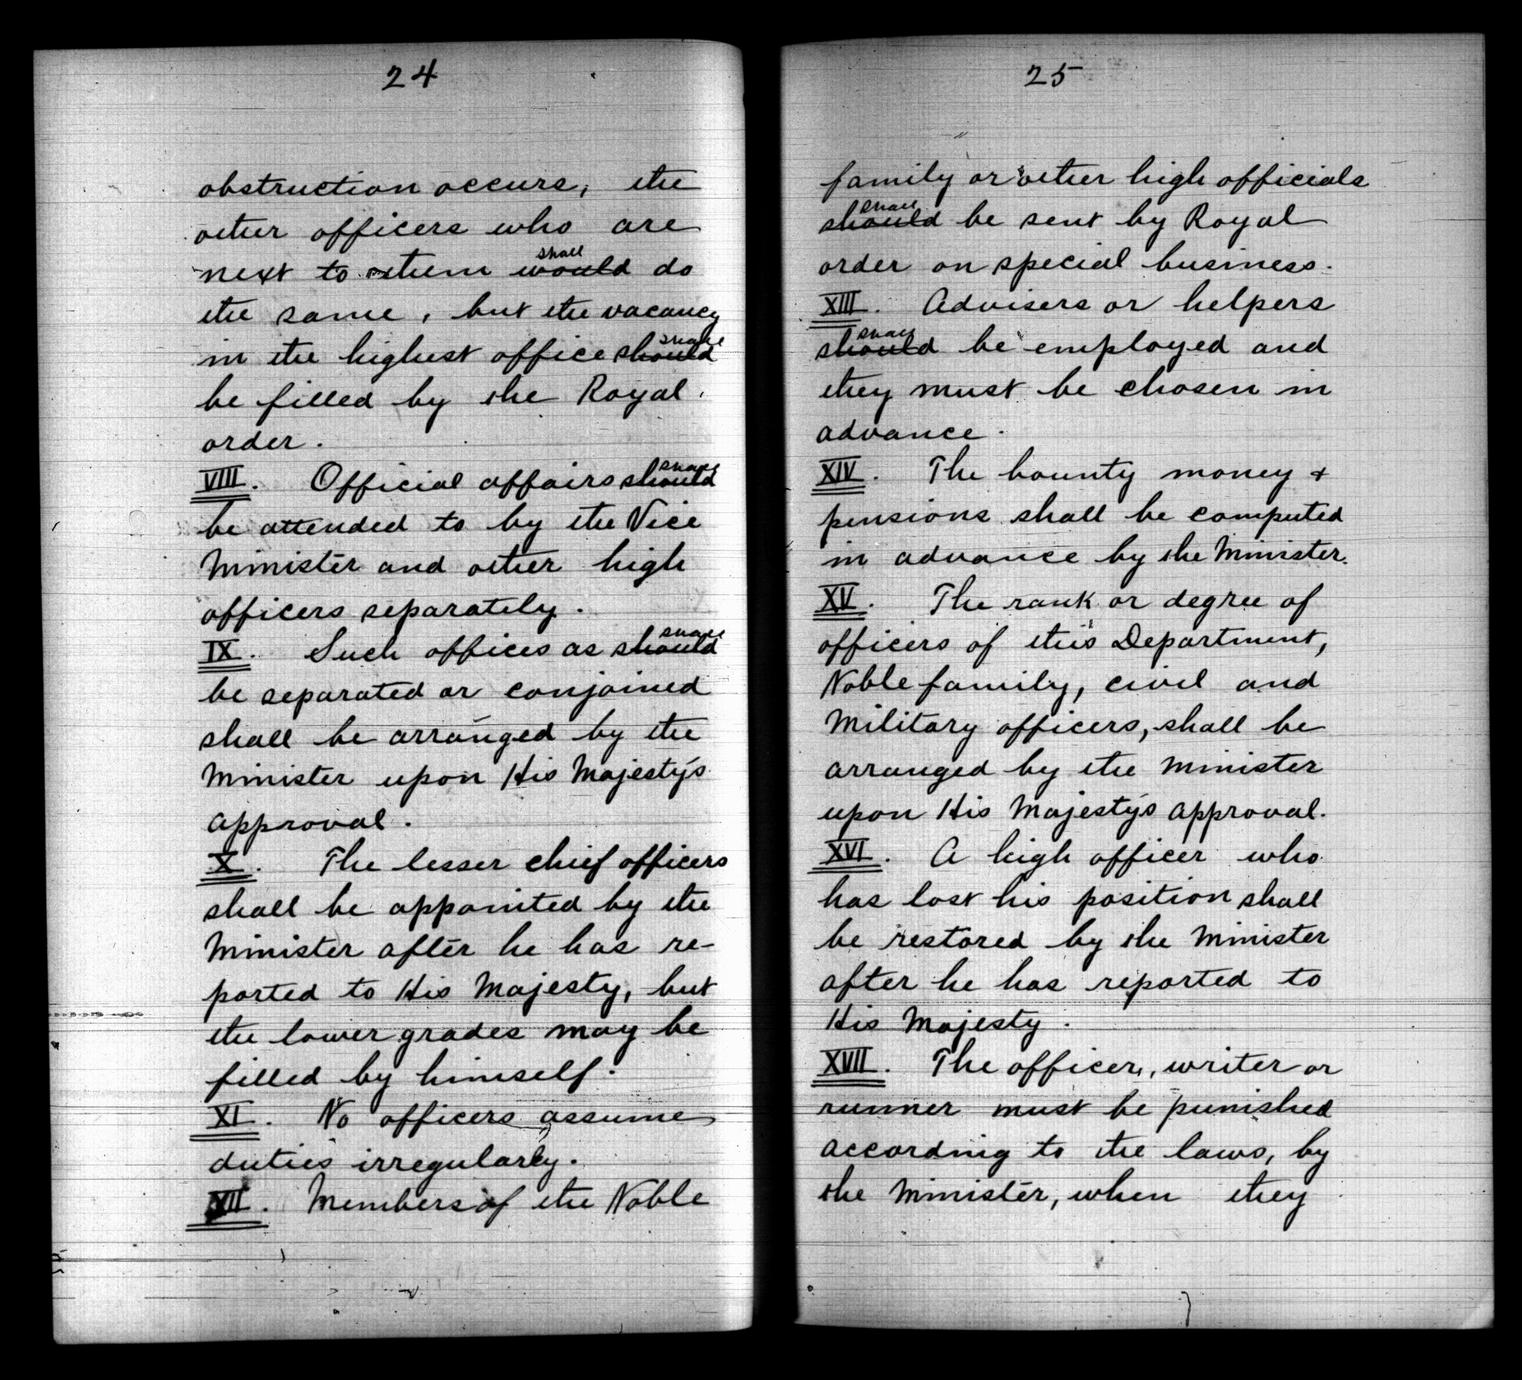 24
obstruction occurs, the
other officers who are
next to them would shall do
the same, but the vacancy
in the highest office should shall
be filled by the Royal
order.
VIII. Official affairs should shall
be attended to by the Vice
Minister and other high
officers separately.
IX. Such offices as should shall
be separated or conjoined
shall be arranged by the
Minister upon His Majesty's
approval.
X. The lesser chief officers
shall be appointed by the
Minister after he has re-
ported to His Majesty, but
the lower grades may be
filled by himself.
XI. No officers assume
duties irregularly.
XII. Members of the Noble
25
family or other high officials
should shall be sent by Royal
order on special business.
XIII. Advisers or helpers
should shall be employed and
they must be chosen in
advance.
XIV. The bounty money +
pensions shall be computed
in advance by the Minister.
XV. The rank or degree of
officers of this Department,
Noble family, civil and
Military officers, shall be
arranged by the Minister
upon His Majesty's approval.
XVI. A high officer who
has lost his position shall
be restored by the Minister
after he has reported to
His Majesty.
XVII. The officer, writer or
runner must be punished
according to the laws, by
the Minister, when they